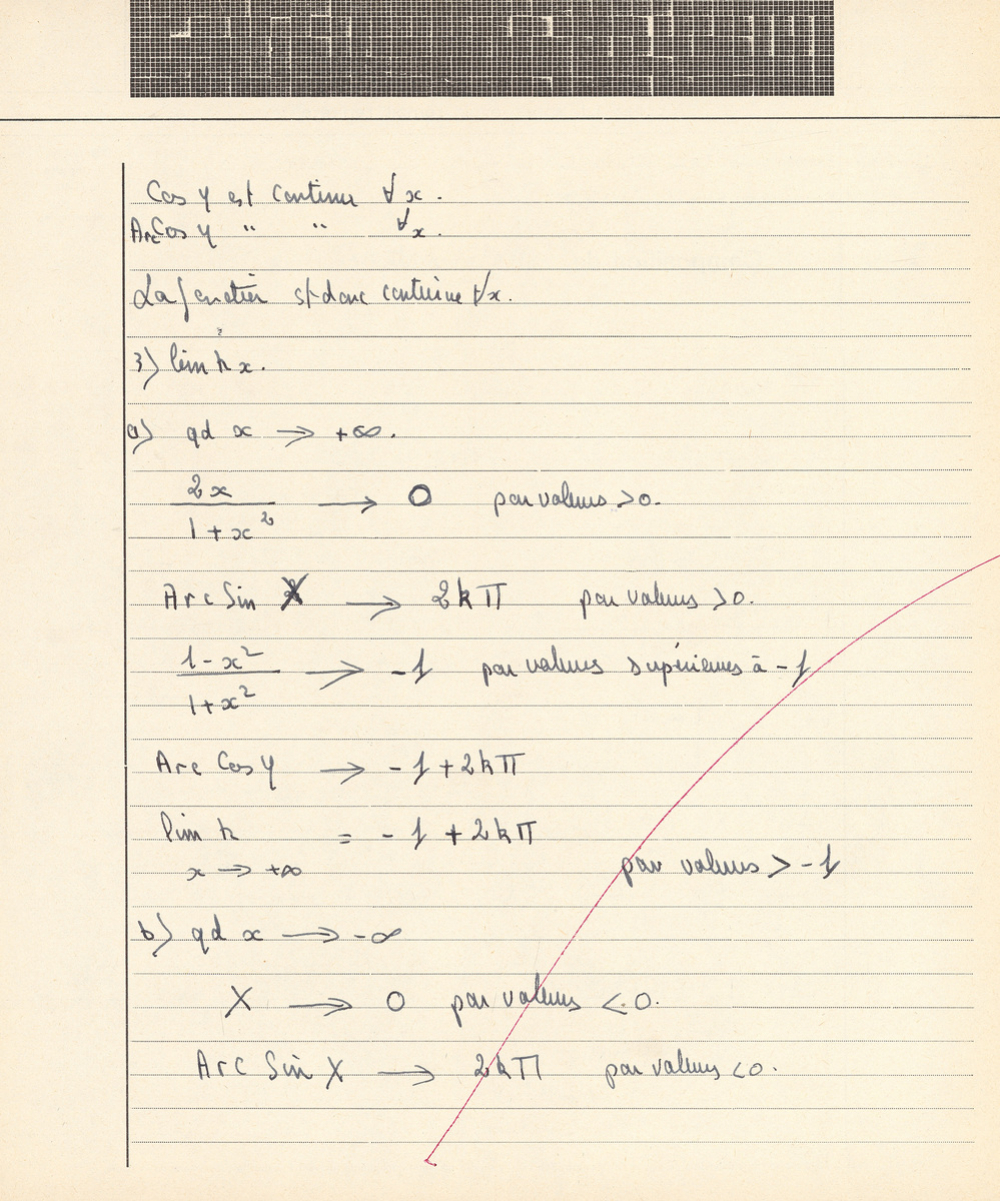 Cos y est continue ∀ x.
Arc Cos y " " ∀x.
La fonction est donc continue ∀x.
3) lim h x.
a) qd x → +∞.
2x / 1 + x² → 0 par valeurs >0.
Arc Sin X → 2kπ par valeurs >0.
1-x² / 1+x² → -1 par valeurs supérieures à -1
Arc Cos y → -1 + 2kπ
lim h = -1 + 2kπ
x → +∞ par valeurs > -1
b) qd x → -∞
X → 0 par valeurs <0.
Arc Sin X → 2kπ par valeurs <0.